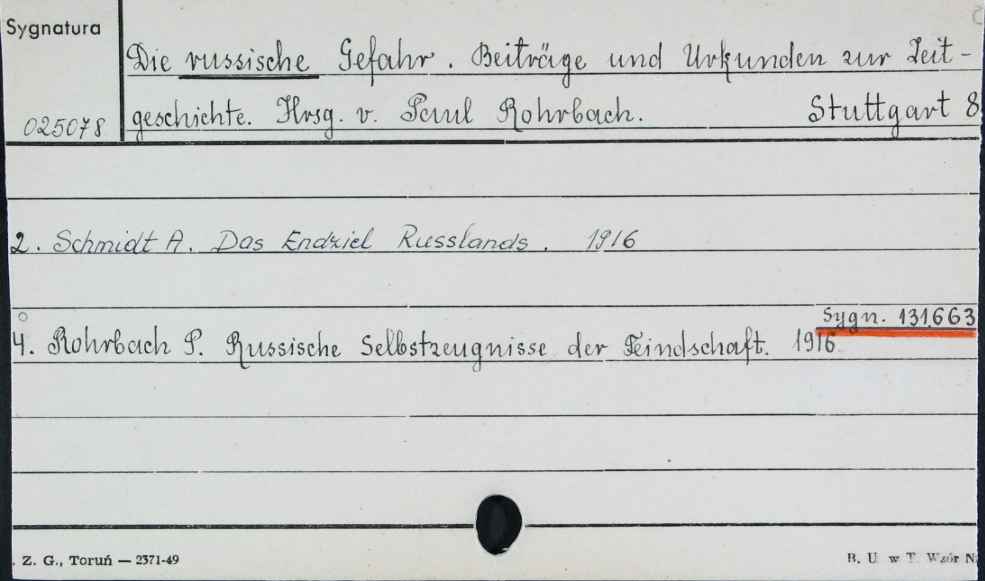 Sygnatura
Die russische Gefahr. Beiträge und Urkunden zur Zeit-
025078 geschichte. Hrsg. v. Paul Rohrbach. Stuttgart 8
2. Schmidt A. Das Endziel Russlands. 1916
Sygn. 131.663
4. Rohrbach P. Russische Selbstzeugnisse der Feindschaft. 1916
Z. G., Toruń — 2371-49
B. U. w T. Wzór N